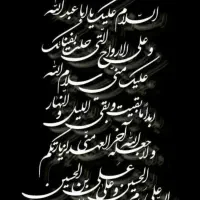 السلام علیک یا ابا عبدالله
و علی الارواح التی حلت بفنائک
علیک منی سلام الله
ابدا ما بقیت و بقی اللیل و النهار
و لا جعله الله آخر العهد منی لزیارتکم
السلام علی الحسین و علی علی بن الحسین